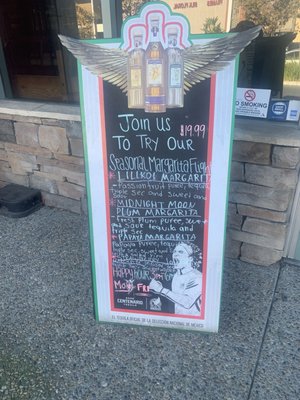 Join us $19.99
To try our
Seasonal Margarita Flight
* LILIKOI MARGARITA
- Passionfruit puree, tequila
triple sec and sweet and
* MIDNIGHT MOON
PLUM MARGARITA
Fresh Plum puree, sweet
and sour tequila and
triple sec
* PAPAYA MARGARITA
Papaya Puree, tequila
triple sec, sweet and
Happy hour
Mon Fri
CENTENARIO
EL TEQUILA OFICIAL DE LA SELECCIÓN MEXICANA
NO SMOKING